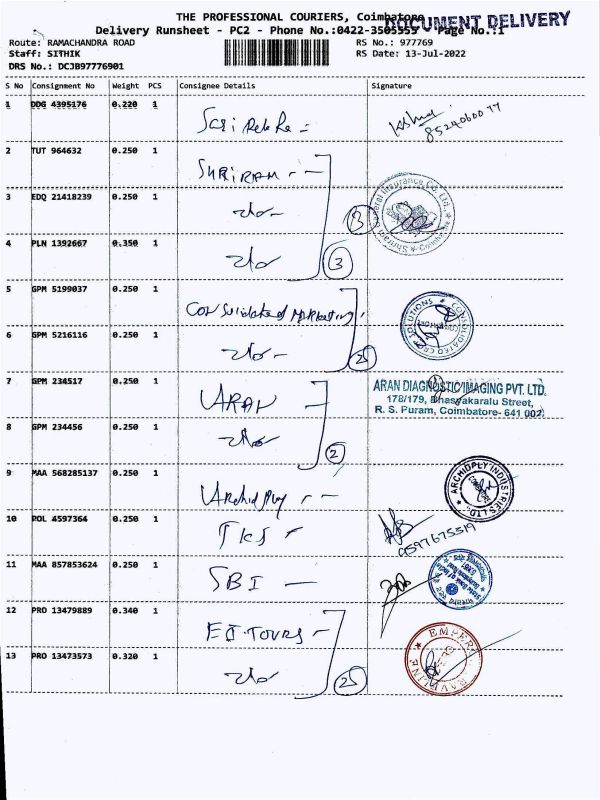 THE PROFESSIONAL COURIERS, Coimbatore
DOCUMENT DELIVERY
Delivery Runsheet - PC2 - Phone No.:0422-3505555 Page No.:1
Route: RAMACHANDRA ROAD
RS No.: 977769
Staff: SITHIK
RS Date: 13-Jul-2022
DRS No.: DCJB97776901
S No Consignment No Weight PCS Consignee Details Signature
1 DDG 4395176 0.220 1
8524060077
2 TUT 964632 0.250 1 SHRIRAM
3 EDQ 21418239 0.250 1
3
4 PLN 1392667 0.350 1
3
5 GPM 5199037 0.250 1 Consolidated Marketing
6 GPM 5216116 0.250 1
2
7 GPM 234517 0.250 1 ARAN
ARAN DIAGNOSTIC IMAGING PVT. LTD.
178/179, Bhasyakaralu Street,
R. S. Puram, Coimbatore- 641 002.
8 GPM 234456 0.250 1
2
9 MAA 568285137 0.250 1 Archidply
ARCHIDPLY INDUSTRIES LTD.
10 POL 4597364 0.250 1 TKS
9597675519
11 MAA 857853624 0.250 1 SBI
State Bank of India
12 PRO 13479889 0.340 1
13 PRO 13473573 0.320 1
2